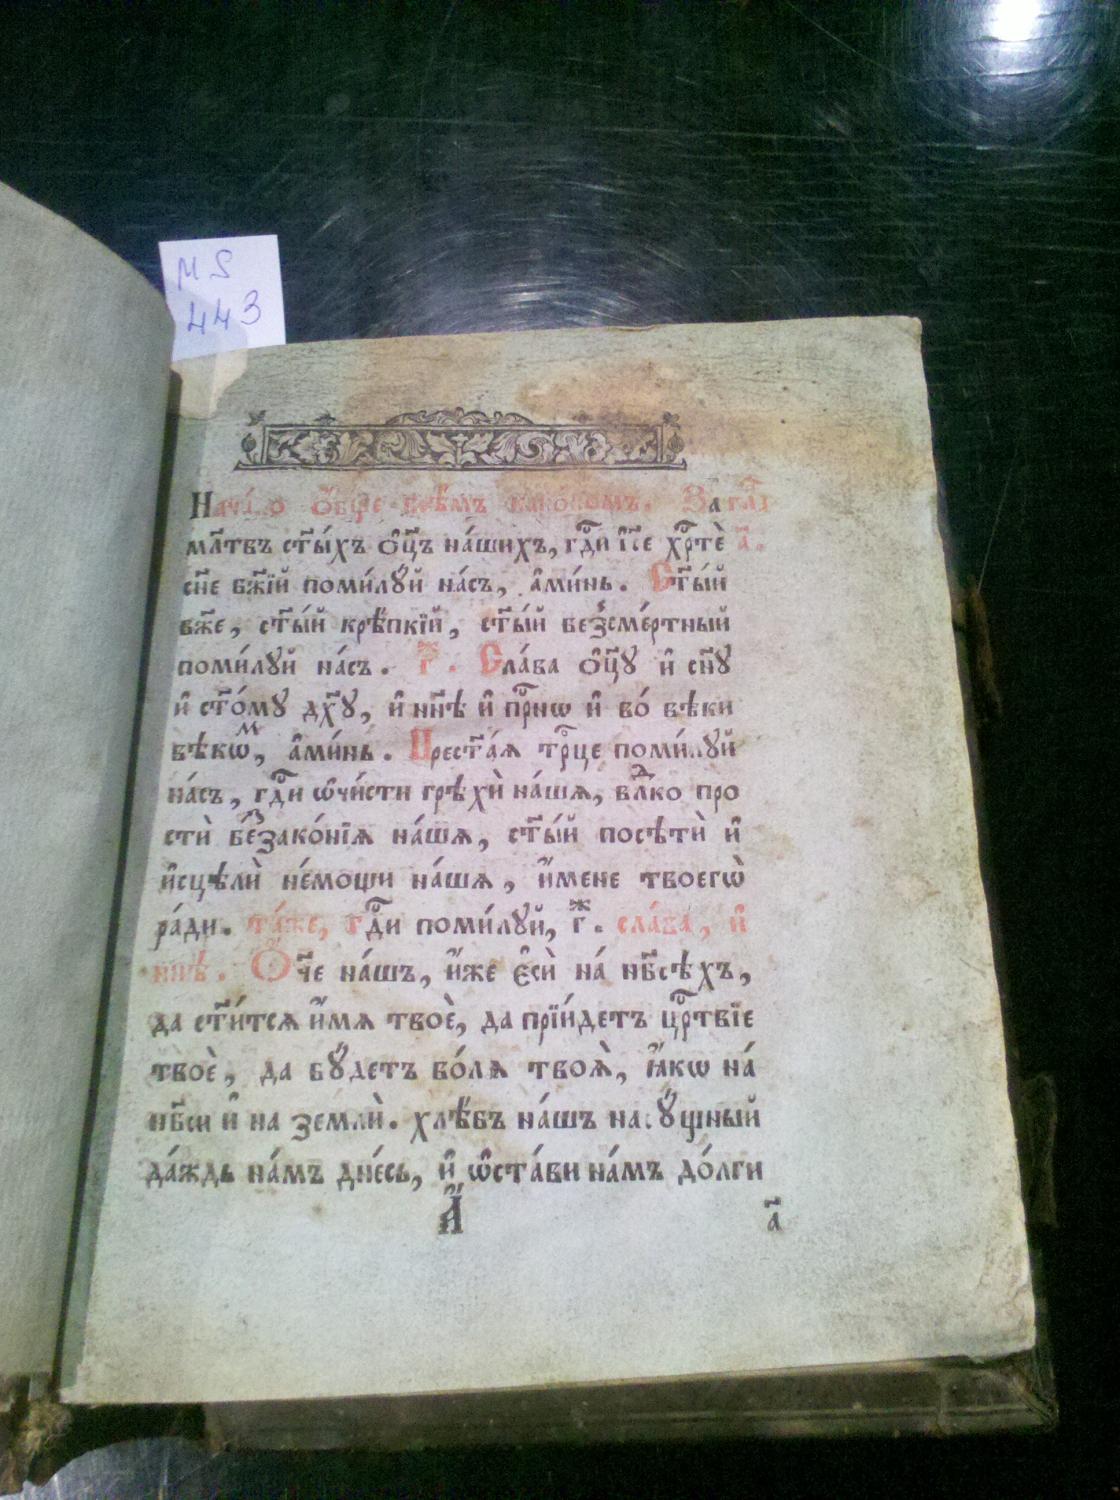 MS
443
Нача́ло ѻ҆́бще всѣ̑мъ кано́номъ. За гла́
мл҃твъ ст҃ы́хъ ѻ҆ц҃ъ на́шихъ, гдⷭ҇и і҆с҃е хрⷭ҇тѐ а҃.
сн҃е бж҃їй поми́лꙋй на́съ, а҆ми́нь. Ст҃ы́й
бж҃е, ст҃ы́й крѣ́пкїй, ст҃ы́й безсме́ртный
поми́лꙋй на́съ. г҃ⷤ. Сла́ва ѻ҆ц҃ꙋ и҆ сн҃ꙋ
и҆ ст҃о́мꙋ дх҃ꙋ, и҆ нн҃ѣ и҆ прⷭ҇нѡ и҆ во́ вѣки
вѣкѡⷨ, а҆ми́нь. Прест҃а́ѧ трⷪ҇це поми́лꙋй
на́съ, гдⷭ҇и ѡ҆чи́сти грѣхѝ на́шѧ, влⷣко про
стѝ беззако́нїѧ на́шѧ, ст҃ы́й посѣтѝ и҆
и҆сцѣлѝ не́мощи на́шѧ, и҆́мене твоегѡ̀
ра́ди. та́же, гдⷭ҇и поми́лꙋй, г҃ⷤ. сла́ва, и҆
нн҃ѣ. Ѻ҆́ч҃е на́шъ, и҆́же є҆сѝ на́ нб҃сѣхъ,
да ст҃и́тсѧ и҆́мѧ твоѐ, да прїи́детъ црⷭ҇твїе
твоѐ, да бꙋ́детъ во́лѧ твоѧ̀, ꙗ҆́кѡ на́
нб҃си и҆ на землѝ. хлѣ́бъ на́шъ насꙋ́щный
да́ждь на́мъ дне́сь, и҆ ѡ҆ста́ви на́мъ до́лги
А҆́ а҃